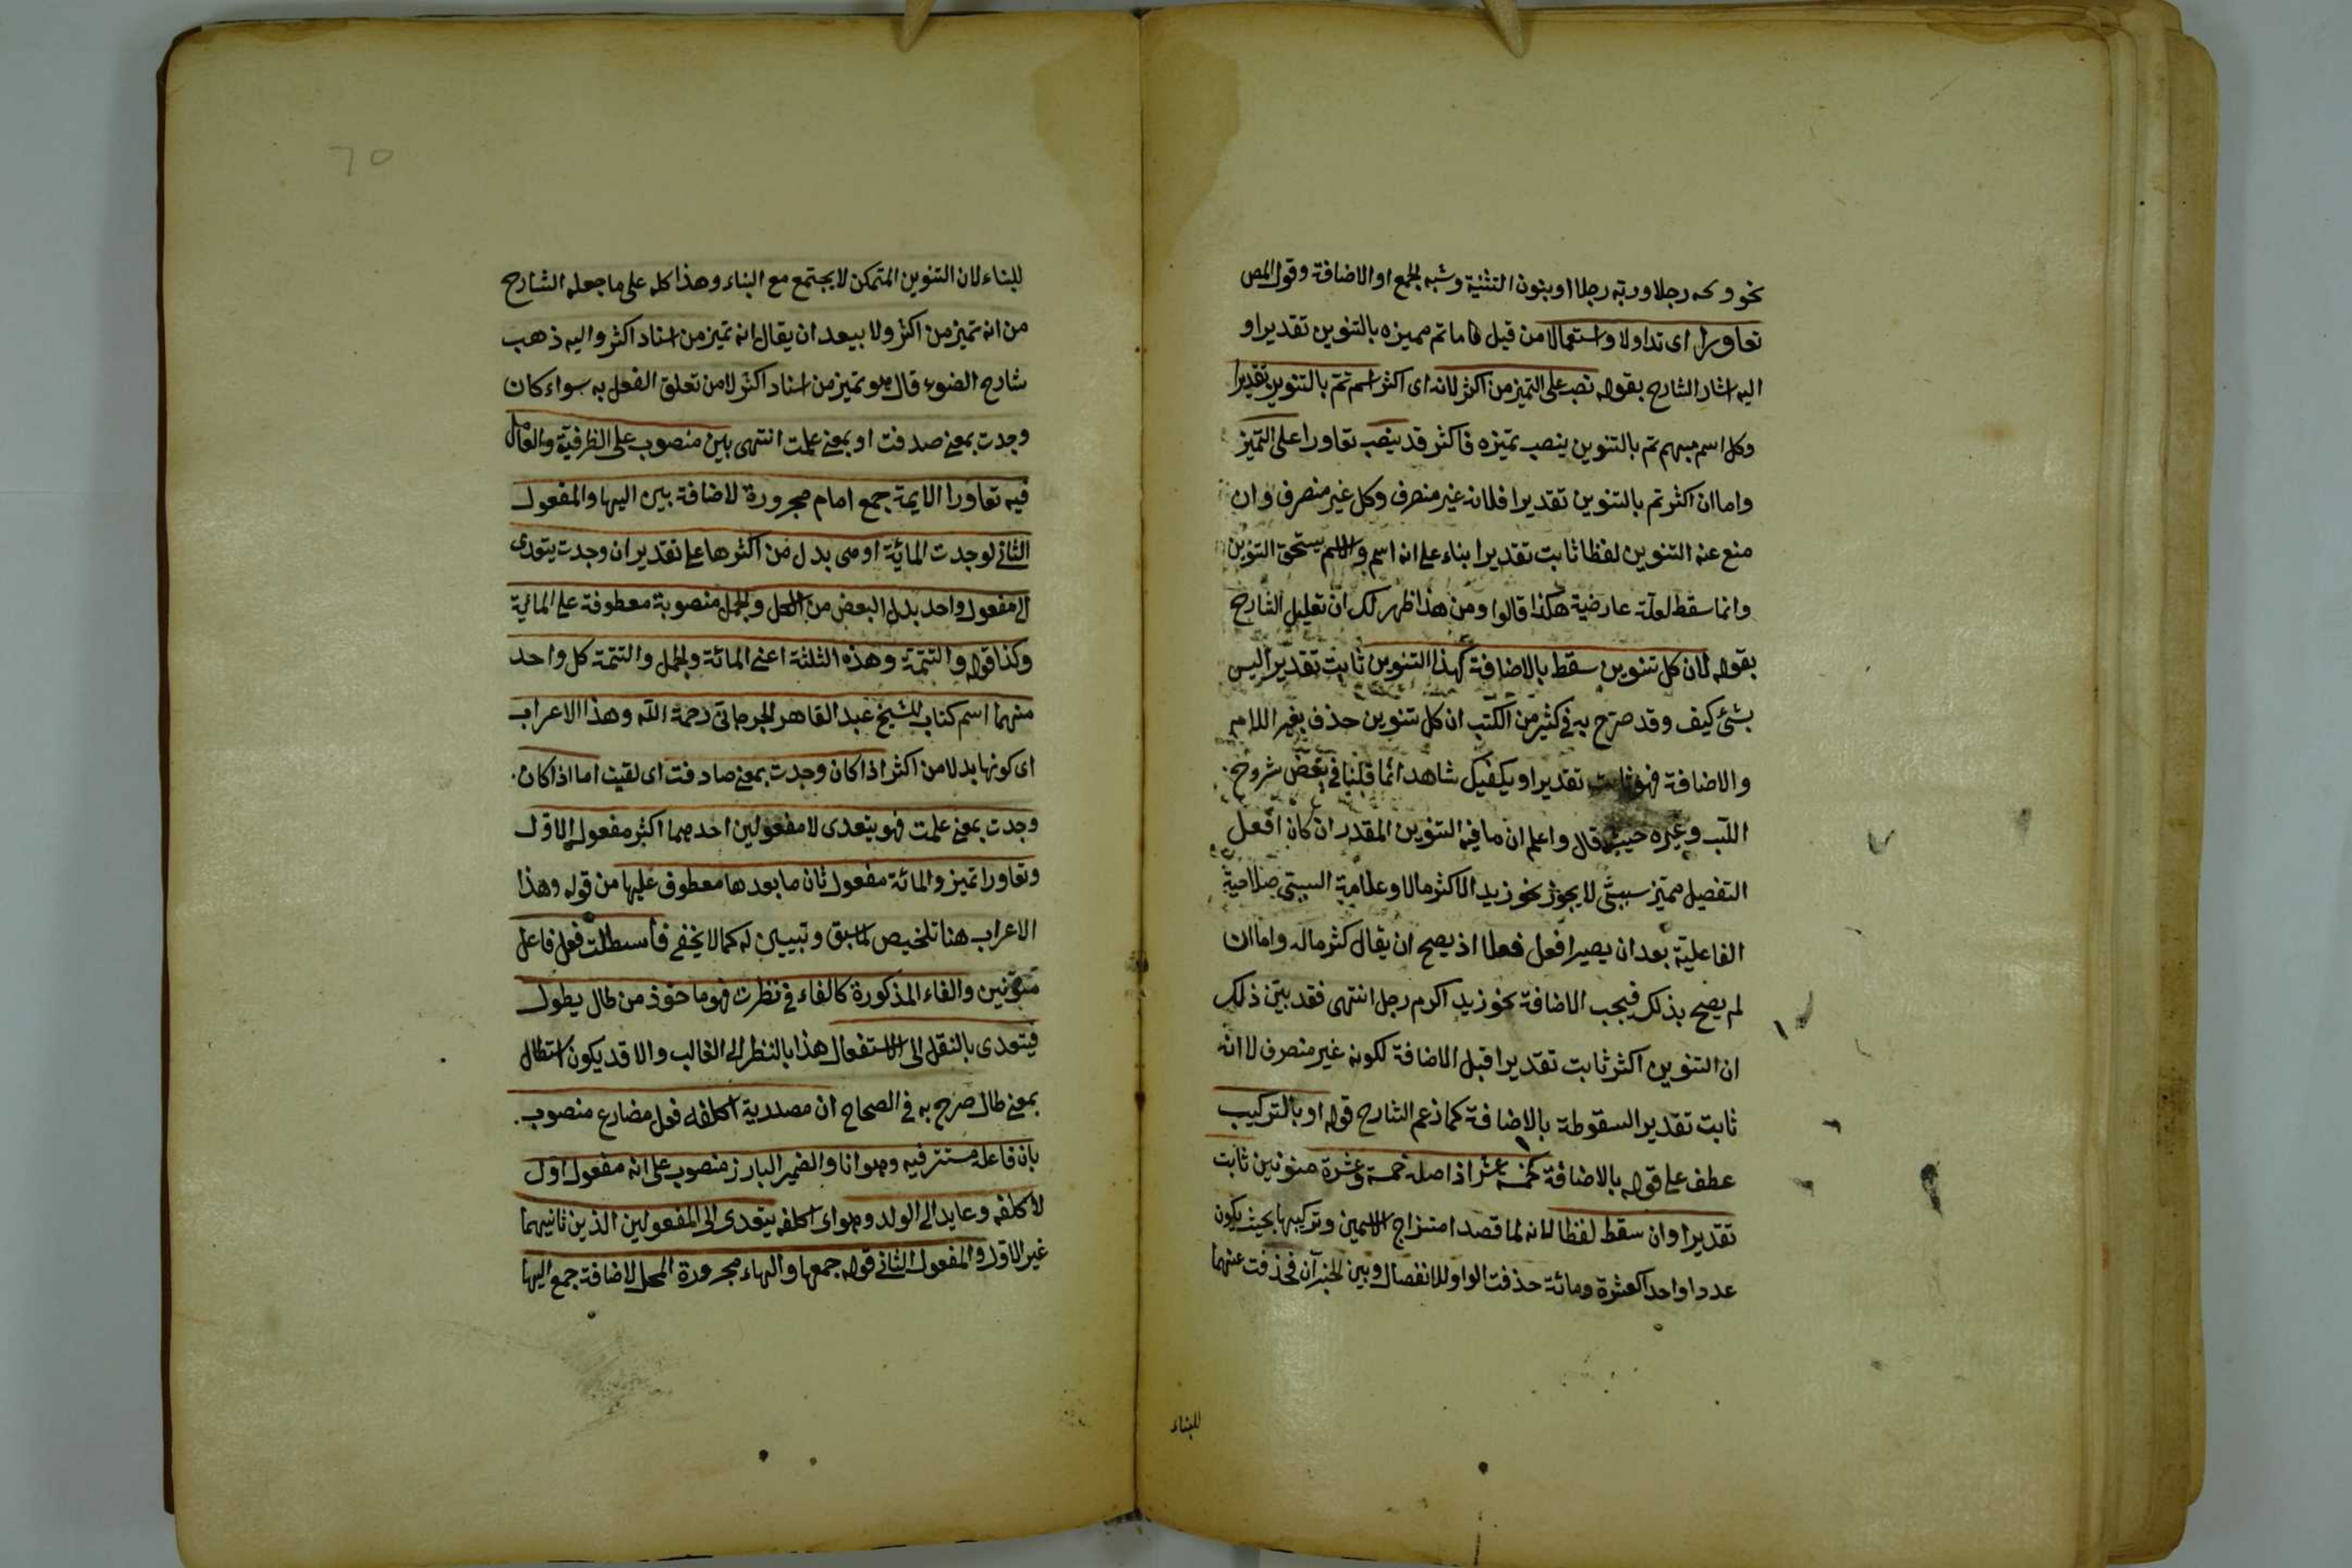 نحو ويحه رجلا وربه رجلا او بنون التثنية وشبه الجمع او الاضافة وقول المص
تعاورا اى تداولا واستعمالا من قبيل ما تم مميزه بالتنوين تقديرا و
اليه اشار الشارح بقوله نصب على التميز من اكثر لانه اى اكثر اسم تم بالتنوين تقديرا
وكل اسم مبهم تم بالتنوين ينصب تميزه فاكثر قد ينصب تعاورا على التميز
واما ان اكثر تم بالتنوين تقديرا فلانه غير منصرف وكل غير منصرف وان
منع عنه التنوين لفظا ثابت تقديرا بناء على انه اسم والاسم يستحق التنوين
وانما سقط لعلة عارضية هكذا قالوا ومن هذا ظهر لك ان تعليل الشارح
بقوله لان كل تنوين سقط بالاضافة فهذا التنوين ثابت تقديرا ليس
بشئ كيف وقد صرح به فى كثير من الكتب ان كل تنوين حذف بغير اللام
والاضافة فهو ثابت تقديرا ويكفيك شاهدا ما قلنا فى بعض شروح
اللب وغيره حيث قال واعلم ان ما فيه التنوين المقدر ان كان افعل
التفضيل مميز سببى لا يجوز نحو زيد الاكثر مالا وعلامة السببى صلاحية
الفاعلية بعد ان يصير افعل فعلا اذ يصح ان يقال كثر ماله واما ان
لم يصح بذلك فيجب الاضافة نحو زيد اكرم رجل انتهى فقد بين ذلك
ان التنوين اكثر ثابت تقديرا قبل الاضافة لكونه غير منصرف لا انه
ثابت تقدير السقوطه بالاضافة كما زعم الشارح قوله او بالتركيب
عطف على قوله بالاضافة كخمسة عشر اذ اصله خمسة وعشرة منونين ثابت
تقديرا وان سقط لفظا لانه لما قصد امتزاج الاسمين وتركيبها بحيث يكون
عددا واحدا كعشرة ومائة حذفت الواو للانفصال وبين الجزآن فحذفت عنهما
للبناء
للبناء لان التنوين المتمكن لا يجتمع مع البناء وهذا كله على ما جعله الشارح
من انه تميز من اكثر ولا يبعد ان يقال انه تميز من اسناد اكثر واليه ذهب
شارح الضوء قال هو تميز من اسناد اكثر لا من تعلق الفعل به سواء كان
وجدت بمعنى صدفت او بمعنى علمت انتهى بين منصوب على الظرفية والعامل
فيه تعاورا الايمة جمع امام مجرورة لاضافة بين اليها والمفعول
الثانى لوجدت المائة او هى بدل من اكثرها على تقدير ان وجدت يتعدى
الى مفعول واحد بدل البعض من الكل والجمل منصوبة معطوفة على المائة
وكذا قوله والتتمة وهذه الثلثة اعنى المائة والجمل والتتمة كل واحد
منهما اسم كتاب للشيخ عبد القاهر الجرجانى رحمة الله وهذا الاعراب
اى كونها بدلا من اكثر اذا كان وجدت بمعنى صادفت اى لقيت اما اذا كان
وجدت بمعنى علمت فهو يتعدى لا مفعولين احدهما اكثر مفعول الاول
وتعاورا تميز والمائة مفعول ثان ما بعدها معطوف عليها من قوله وهذا
الاعراب هنا تلخيص لما سبق وتبيين له كما لا يخفى فاستطلت فعل فاعل
متوقين والفاء المذكورة كالفاء فى نظرت فهو ماخوذ من طال يطول
فيتعدى بالنقل الى الاستفعال هذا بالنظر الى الغالب والا قد يكون استطال
بمعنى طال صرح به فى الصحاح ان مصدرية اكلفه فعل مضارع منصوب
بان فاعله مستتر فيه وهو انا والضمير البارز منصوب على انه مفعول اول
لاكلفه وعايد الى الولد وهو اى اكلفه يتعدى الى المفعولين الذين ثانيهما
غير الاول والمفعول الثانى قوله جمعها والهاء مجرورة المحل لاضافة جمع اليها